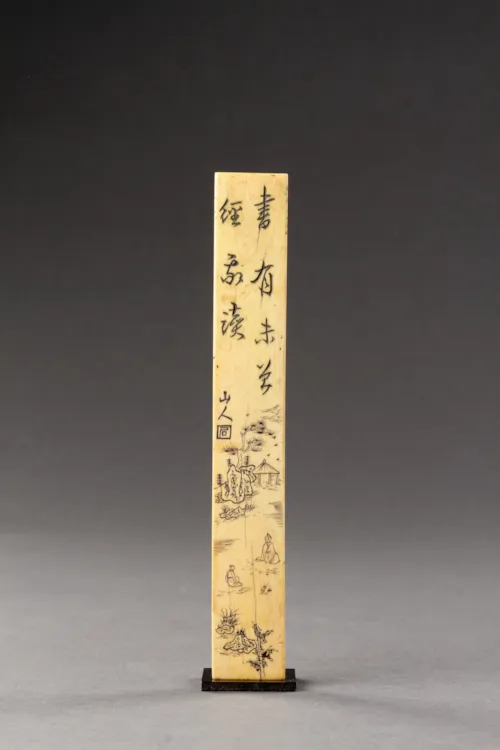 書有未曾
經我讀
山人